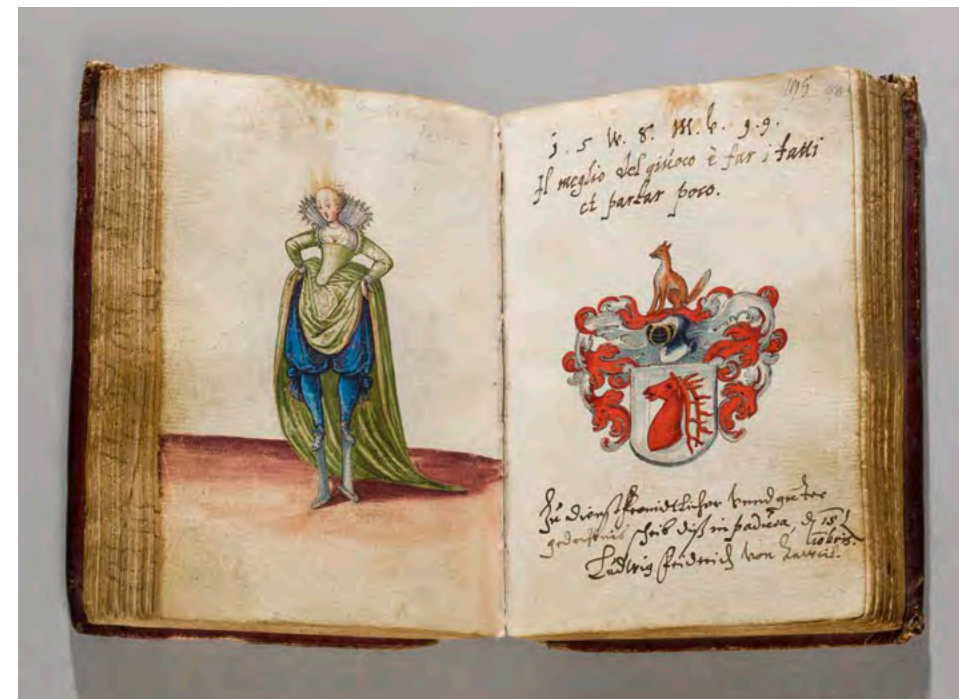 115 98
1 . 5 W. 8. M. b. 9. 9.
Il meglio del giuoco è far i fatti
et parlar poco.
Zu dienstfreundtlicher vnnd guter
gedechtnis schrib diß in padua, d 15
Ludwig fridrich von